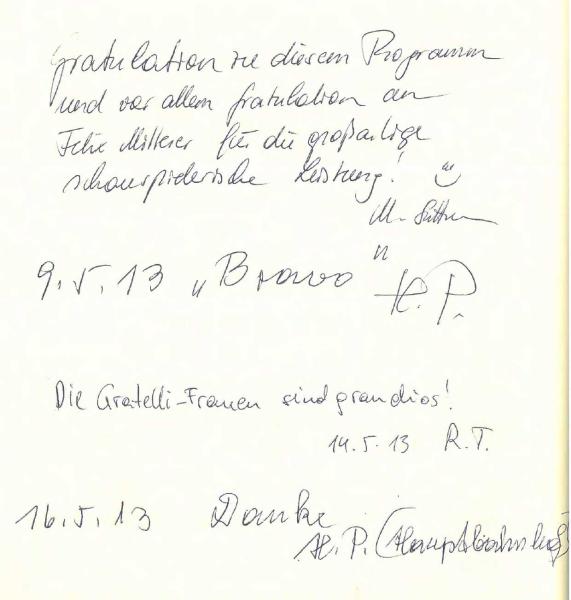 Gratulation zu diesem Programm
und vor allem Gratulation an
Felix Mitterer für die großartige
schauspielerische Leistung!
9.5.13 „Bravo" H.P.
Die Gratelli-Frauen sind grandios!
14.5.13 R.T.
16.5.13 Danke
H.P. (Hauptbahnhof)